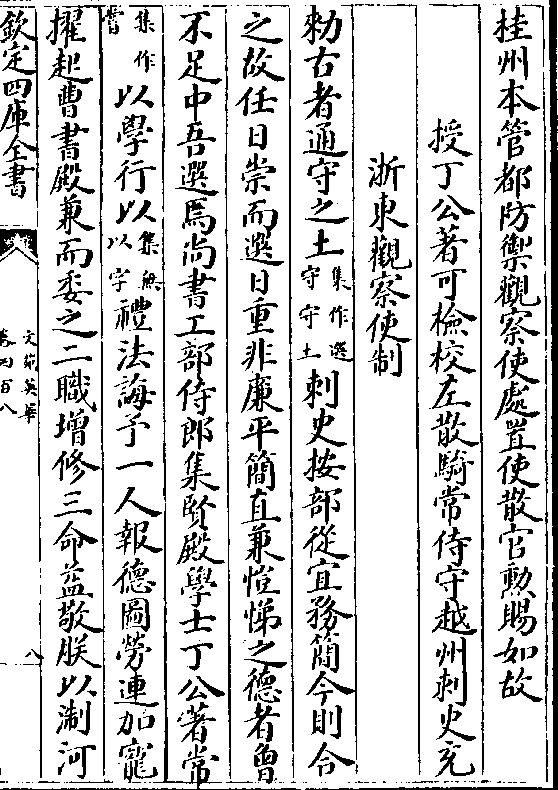 桂州本管都防禦觀察使處置使散官勲賜如故
授丁公著可檢校左散騎常侍守越州刺史充
浙東觀察使制
勑古者通守之土集作選守守土刺史按部從宜務簡今則合
之故任日崇而選日重非廉平簡直兼愷悌之德者曾
不足中吾選焉尚書工部侍郎集賢殿學士丁公著常
集作嘗以學行以集無以字禮法誨予一人報德圖勞連加寵
擢起曹書殿兼而委之二職增修三命益敬朕以淛河
欽定四庫全書
文苑英華
卷四百八
八